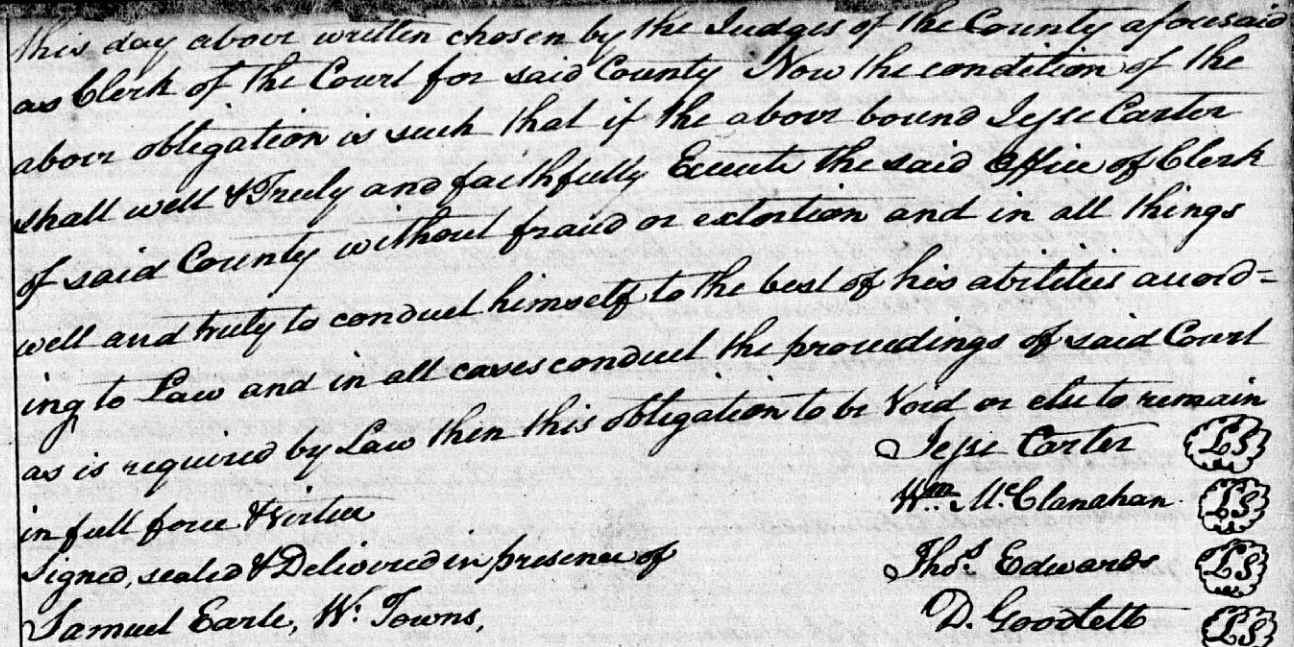 this day above written chosen by the Judges of the County aforesaid
as Clerk of the Court for said County Now the condition of the
above obligation is such that if the above bound Jesse Carter
shall well & Truly and faithfully Execute the said Office of Clerk
of said County without fraud or extortion and in all things
well and truly to conduct himself to the best of his abilities accord=
ing to Law and in all cases conduct the proceedings of said Court
as is required by Law then this obligation to be Void or else to remain
in full force & Virtue
Jesse Carter LS
Wm. McClanahan LS
Signed, sealed & Delivered in presence of
Thos. Edwards LS
Samuel Earle, W. Towns,
D. Goodlett LS